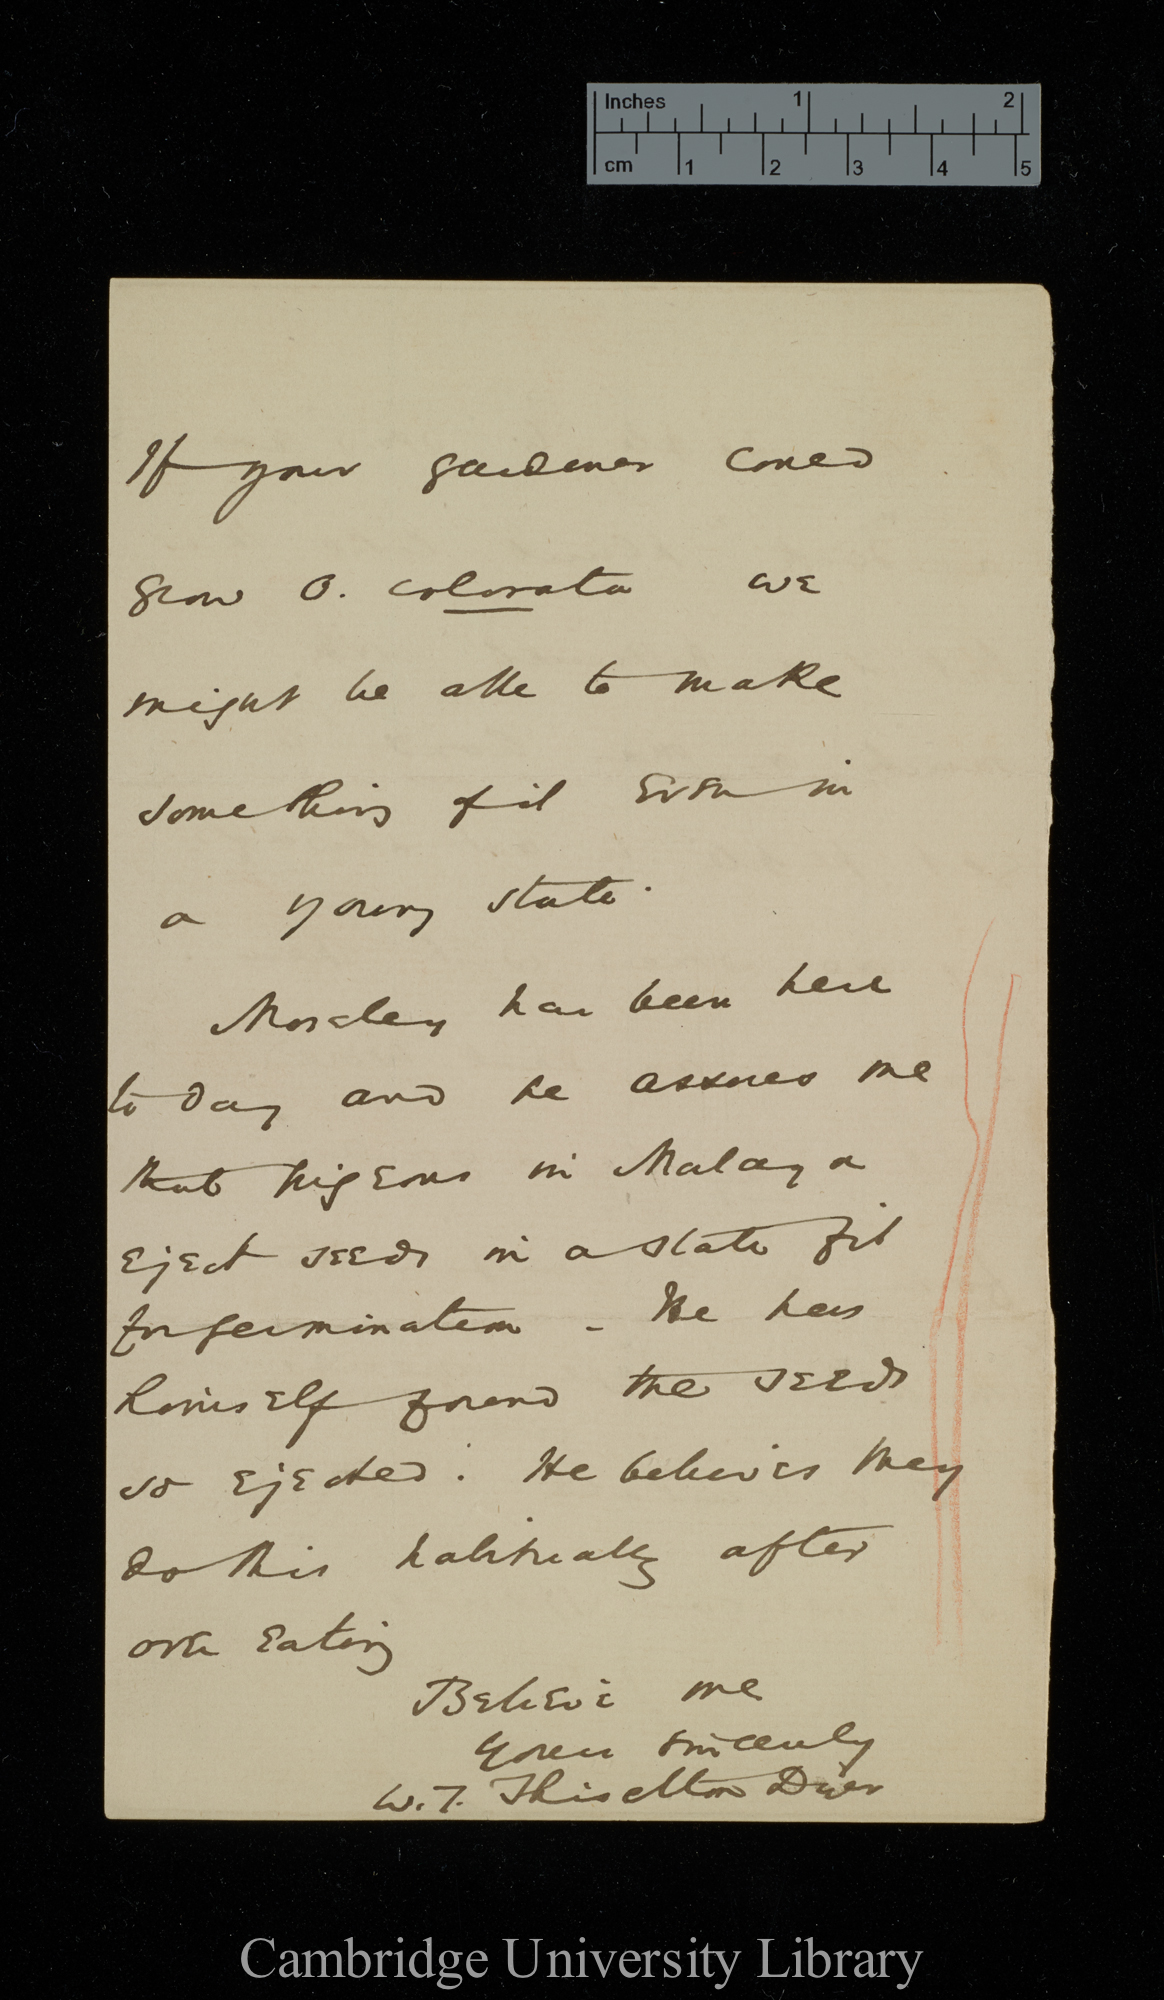 Inches 1 2
cm 1 2 3 4 5
If your gardener could
grow O. colorata we
might be able to make
something of it even in
a young state.
Moseley has been here
to day and he assures me
that pigeons in Malaya
eject seeds in a state fit
for germination – He has
himself found the seeds
so ejected. He believes they
do this habitually after
over eating
Believe me
Yours sincerely
W. T. Thiselton Dyer
Cambridge University Library